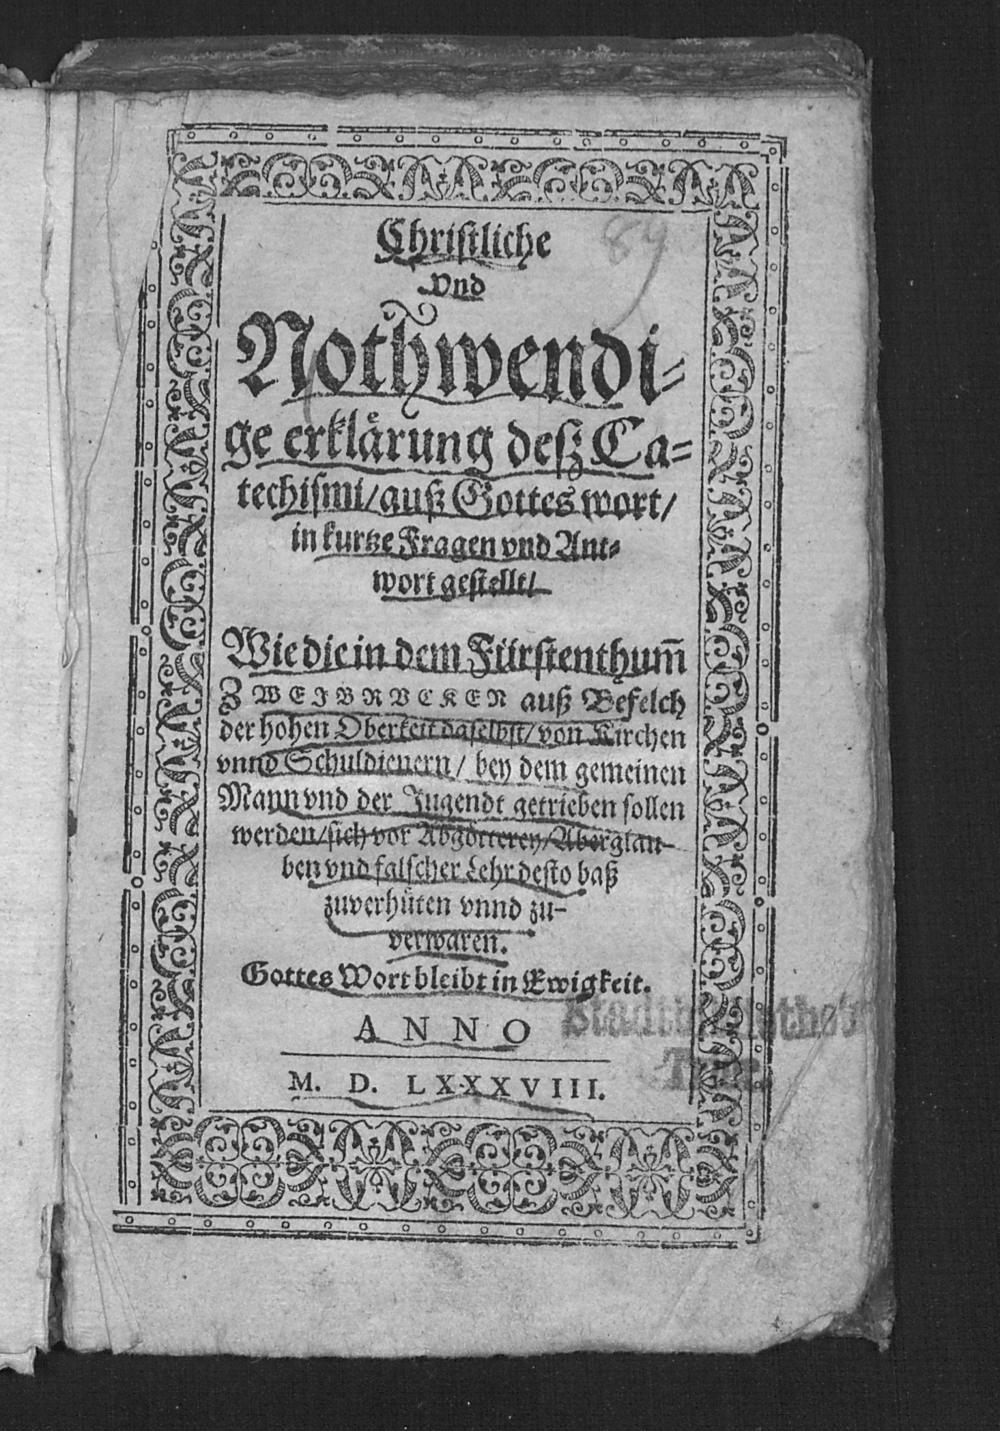 Christliche
vnd
Nothwendi-
ge erklärung deß Ca-
techismi/ auß Gottes wort/
in kurtze Fragen vnd Ant-
wort gestellt/
Wie die in dem Fürstenthum̃
ZWEIBRVCKEN auß Befelch
der hohen Oberkeit daselbst/ von Kirchen
vnnd Schuldienern/ bey dem gemeinen
Mann vnd der Jugendt getrieben sollen
werden/ sich vor Abgötterey/ Aberglau-
ben vnd falscher Lehr desto baß
zuverhüten vnnd zu-
verwaren.
Gottes Wort bleibt in Ewigkeit.
ANNO
M. D. LXXXVIII.
89
Stadtbibliothek
Trier.